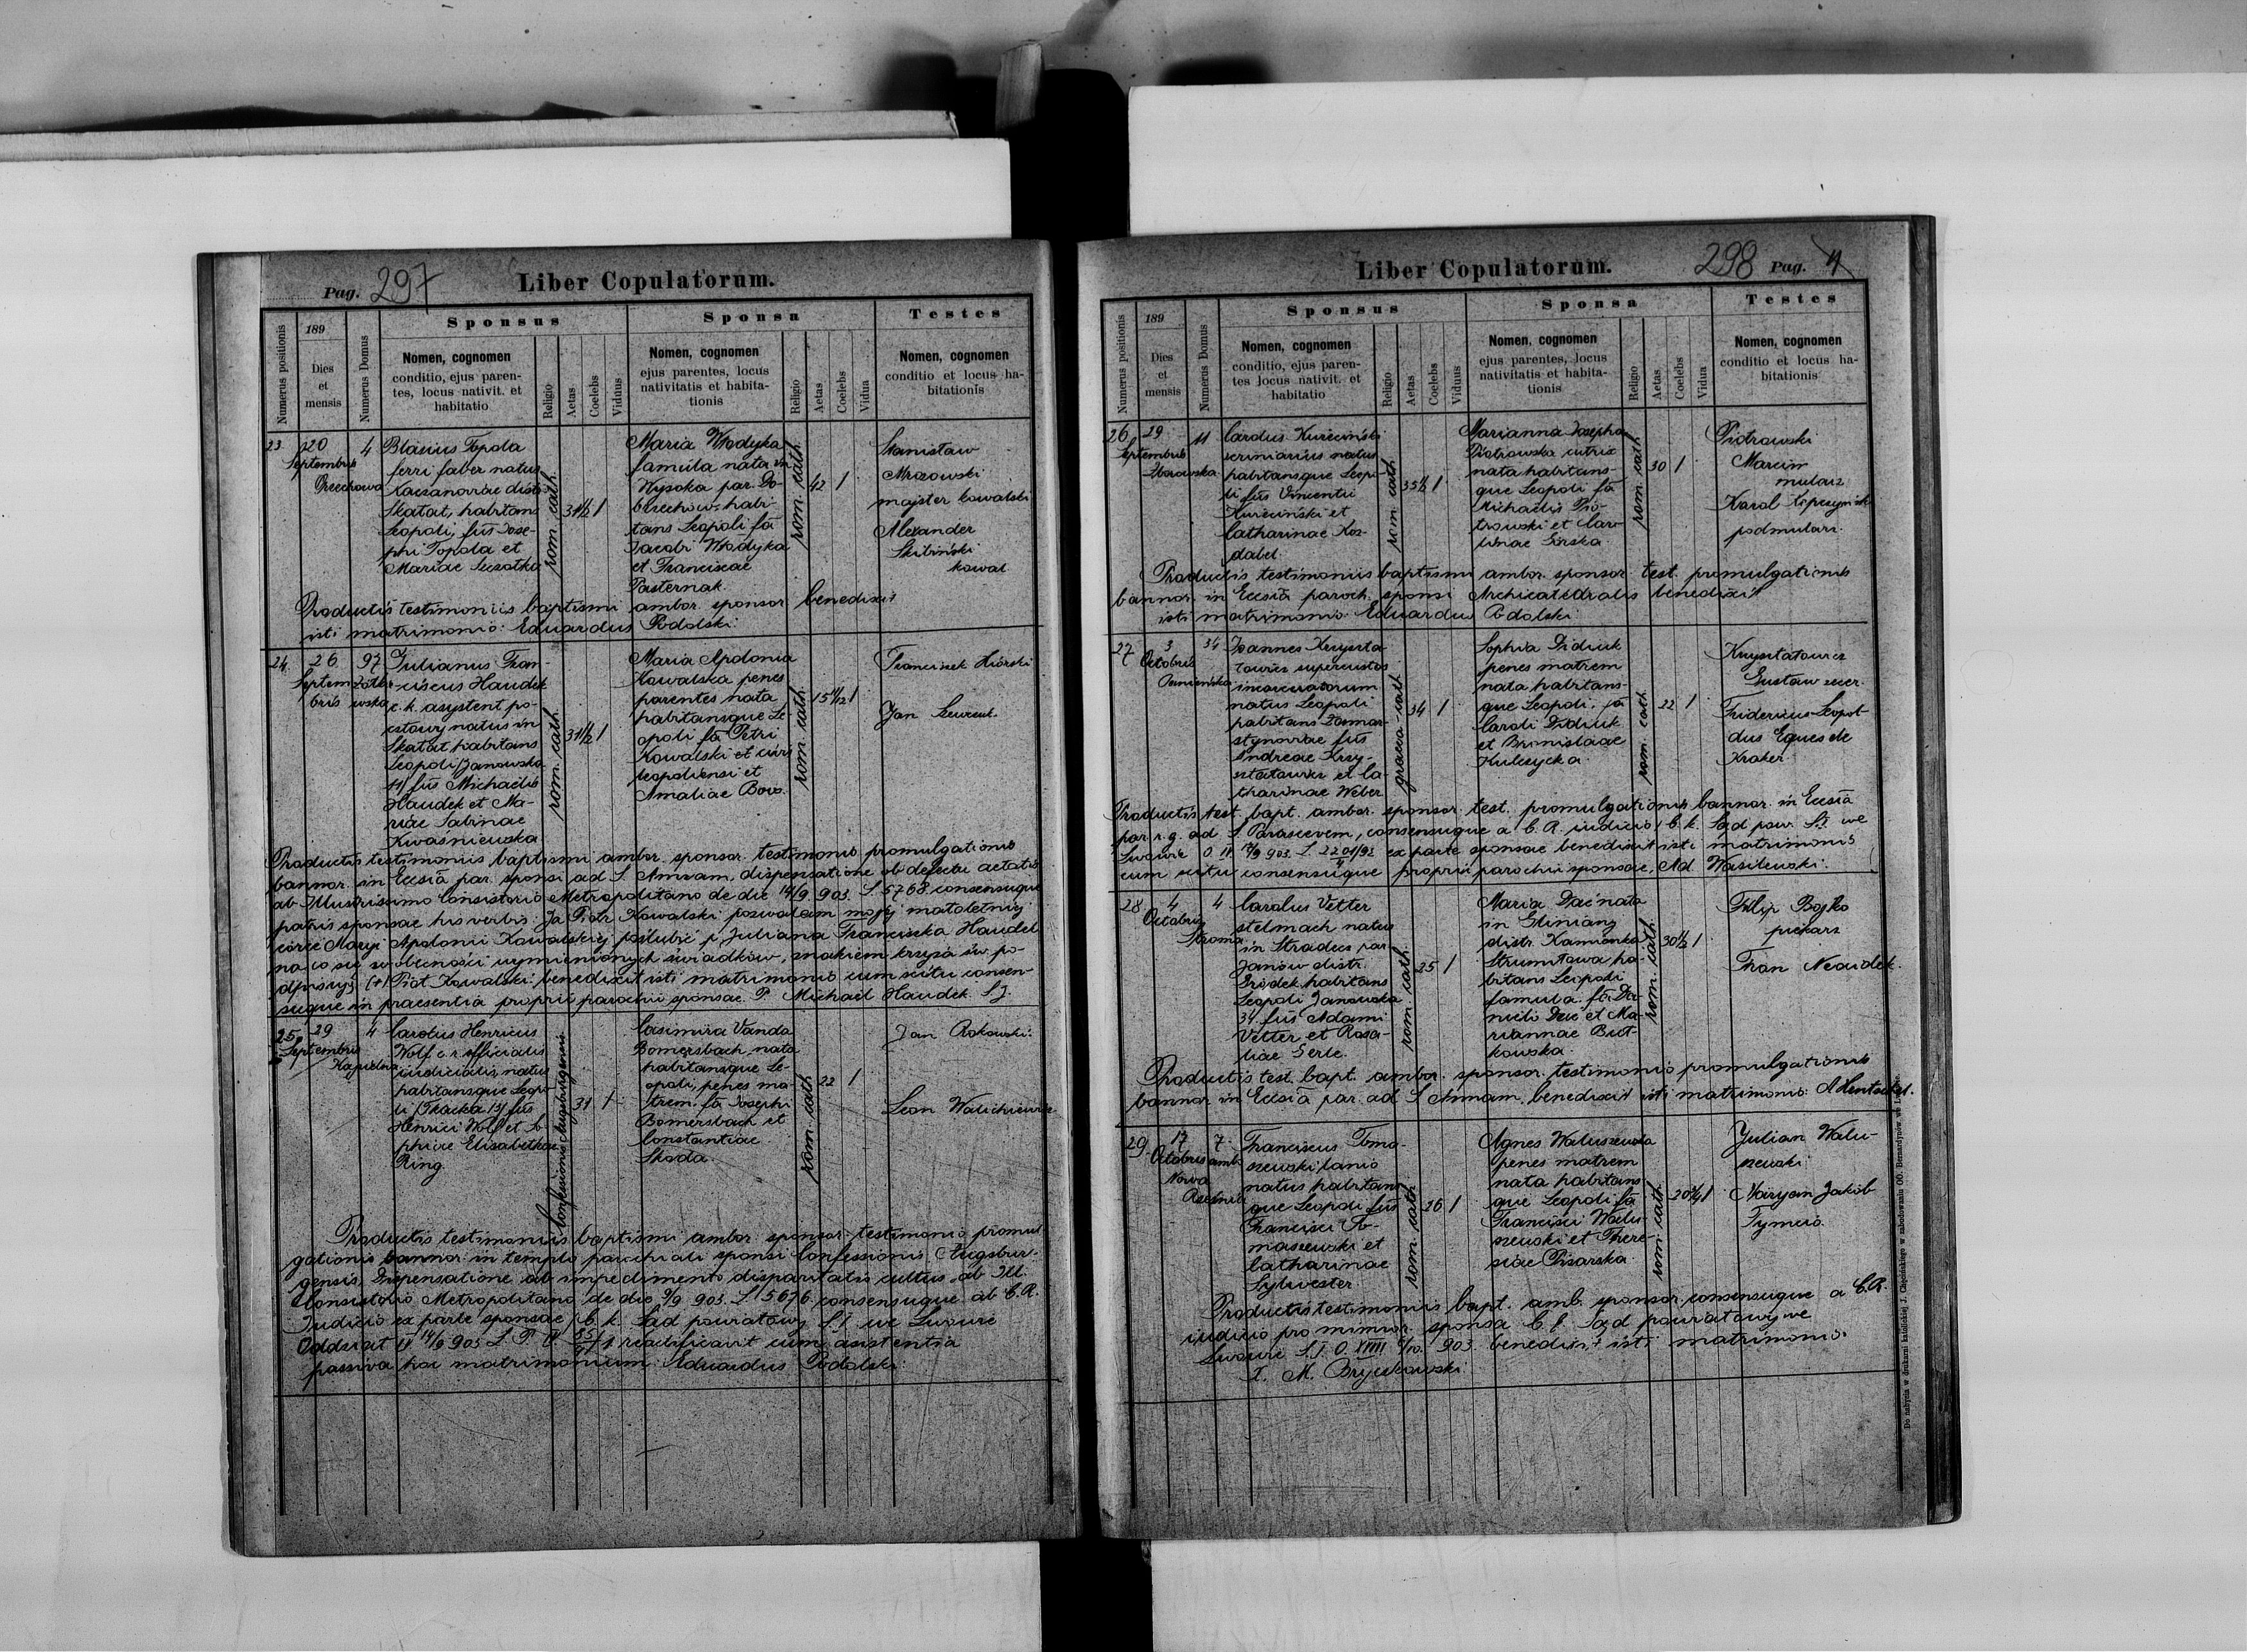 Pag. 297
Liber Copulatorum.
Numerus positionis
189
Dies
et
mensis
Numerus Domus
Sponsus
Nomen, cognomen
conditio, ejus paren-
tes, locus nativit. et
habitatio
Religio
Aetas
Coelebs
Viduus
Sponsa
Nomen, cognomen
ejus parentes, locus
nativitatis et habita-
tionis
Religio
Aetas
Coelebs
Vidua
Testes
Nomen, cognomen
conditio et locus ha-
bitationis
23
20
Septembris
4
Blasius Topola
ferri faber natus
Skałat, habitans
Leopoli, fus Jose-
phi Topola et
Mariae
rom. cath.
31 1/2
1
Maria Włodyka
famula nata in
Wysoka par. Do-
brzechów habi-
tans Leopoli fa
Jacobi Włodyka
et Franciscae
Pasternak.
rom. cath.
42
1
Stanisław
Mrozowski
majster kowalski
Alexander
Skibiński
kowal
Productis testimoniis baptismi ambor. sponsor. benedixit
isti matrimonio: Eduardus Podolski.
24.
26
Septem
bris
97
Julianus Fran-
ciscus Haudek
c. k. asystent po-
cztowy natus in
Skałat habitans
Leopoli Janowska
11) fus Michaelis
Haudek et Ma-
riae Sabinae
Kwaśniewska
rom. cath.
31 1/2
1
Maria Apolonia
Kowalska penes
parentes nata
habitansque Le-
opoli fa Petri
Kowalski et civis
leopoliensi et
Amaliae
rom. cath.
15 1/12
1
Franciszek
Jan Szewczuk.
Productis testimoniis baptismi ambor. sponsor. testimonio promulgationis
bannor. in Ecclesia par. sponsi ad S. Annam, dispensatione ob defectu aetatis
ab Illustrissimo Consistorio Metropolitano de die 14/9 903. L. 5768 consensuque
patris sponsae his verbis: Ja Piotr Kowalski pozwalam mojej małoletniej
córce Maryi Apolonii Kowalskiej poślubić p. Juliana Franciszka Haudek
na co się w obecności wymienionych świadków, znakiem krzyża św. po-
dpisuję (+) Piotr Kowalski benedixit isti matrimonio cum scitu consen-
suque in praesentia proprii parochi sponsae P. Michael Haudek S. J.
25.
29
Septembris
4
Carolus Henricus
Wolf c. r. officialis
iudicialis, natus
habitansque Leopo
li (Tkacka 13) fus
Henrici Wolf et So-
phiae Elisabethae
Ring.
Confessionis Augsburgensis
31
1
Casimira Vanda
Bomersbach nata
habitansque Le-
opoli, penes ma-
trem. fa Josephi
Bomersbach et
Constantiae
Skoda
rom. cath
22
1
Jan Rokowski.
Leon
Productis testimoniis baptismi ambor. sponsor. testimonio promul
gationis bannor. in templo parochiali sponsi Confessionis Augsbur-
gensis, Dispensatione ab impedimento disparitatis cultus ab Ill.
Consistorio Metropolitano de die 9/9 903. L. 5676 consensuque ab C. R.
Judicio ex parte sponsae (c. k. Sąd powiatowy S. I. we Lwowie
Oddział II 14/9 903 L. P. II. cum asistentia
passiva hoc matrimonium: Eduardus Podolski.
Liber Copulatorum.
298
Pag.
Numerus positionis
189
Dies
et
mensis
Numerus Domus
Sponsus
Nomen, cognomen
conditio, ejus paren-
tes locus nativit. et
habitatio
Religio
Aetas
Coelebs
Viduus
Sponsa
Nomen, cognomen
ejus parentes, locus
nativitatis et habita-
tionis
Religio
Aetas
Coelebs
Vidua
Testes
Nomen, cognomen
conditio et locus ha-
bitationis
26
29
Septembris
Zborowska
11
Carolus
scriniarius natus
habitansque Leopo
li fus Vincentii
et
Catharinae Koz-
dabel.
rom. cath
35 1/2
1
Marianna Josepha
Piotrowska
nata habitans-
que Leopoli fa
Michaelis Pio-
trowski et Caro-
linae Górska
rom. cath.
30
1
Piotrowski
Marcin
mularz
Karol
podmularz.
Productis testimoniis baptismi ambor. sponsor. test. promulgationis
bannor. in Ecclesia paroch. sponsi Archicatedralis benedixit
isti matrimonio Eduardus Podolski.
27
3
Octobris
34
Joannes Krzyszta-
łowicz
natus Leopoli
habitans
fus
Andreae Krzy-
ształowicz et Ca
tharinae Weber
graeco-cath.
34
1
Sophia Didiuk
penes matrem
nata habitans-
que Leopoli, fa
Caroli Didiuk
et Bronislaae
Kulczycka
rom. cath.
22
1
Krzyształowicz
Gustaw
Fridericus Leopol
dus Eques de
Productis test. bapt. ambor. sponsor. test. promulgationis bannor. in Ecclesia
par. r. g. ad S. Parascevem, consensuque a C. R. iudicio (c. k. Sąd pow. S. I. we
Lwowie O. II ex parte sponsae benedixit isti matrimonio
cum scitu consensuque proprii parochi sponsae, Ad Wasilewski.
28
4
Octobris
Stroma
4
Carolus Vetter
stelmach natus
in Stradecs par
Janów distr.
Gródek habitans
Leopoli Janowska
34. fus Adami
Vetter et Rosa-
liae Gerle.
rom. cath.
25
1
Maria nata
in Gliniany
distr. Kamionka
Strumiłowa ha
bitans Leopoli
famula. fa Da-
nieli et Ma-
riannae But-
kowska
rom. cath.
30 1/2
1
Filip Bojko
piekarz
Fran Neaudek.
Productis test. bapt. ambor. sponsor. testimonio promulgationis
bannor. in Ecclesia par. ad S Annam, benedixit isti matrimonio:
29.
17
Octobris
Nowa
Rzeźnia
7
Franciscus Toma-
szewski lanio
natus habitans
que Leopoli fus
Francisci To-
maszewski et
Catharinae
Sylwester
rom. cath.
26
1
Agnes Waluszewska
penes matrem
nata habitans
que Leopoli fa
Francisci Walu-
szewski et There-
siae Pisarska
rom. cath.
1
Julian Walu-
szewski
Maryan Jakób
Productis testimoniis bapt. amb. sponsor. consensuque a C. R.
iudicio pro minor. sponsa C. k. Sąd powiatowy we
Lwowie S. I. O. 903. benedixit isti matrimonio.
X. M.
Do nabycia w drukarni katolickiej J. Chęcińskiego w zabudowaniu OO. Bernardynów, we Lwowie.